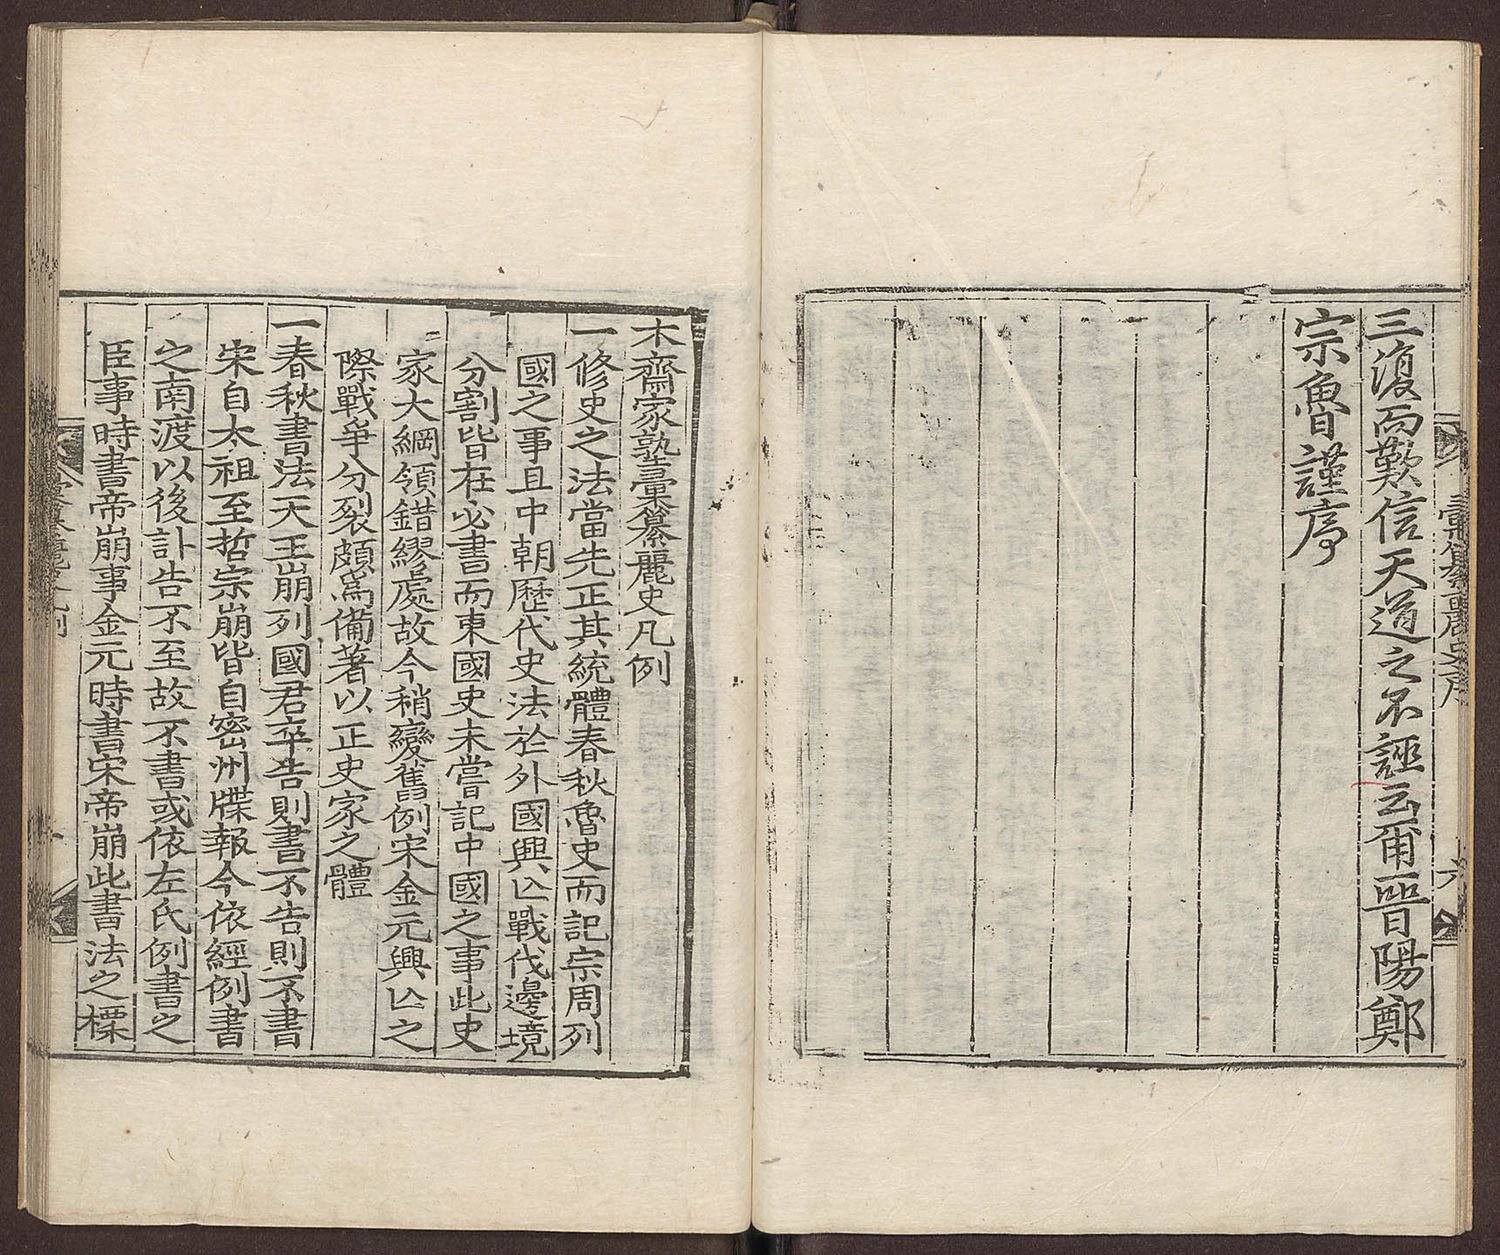 彙纂麗史序
六
三復而歎信天道之不誣云爾晉陽鄭
宗魯謹序
木齋家塾彙纂麗史凡例
一修史之法當先正其統體春秋魯史而記宗周列
國之事且中朝歷代史法於外國興亾戰伐邊境
分割皆在必書而東國史未嘗記中國之事此史
家大綱領錯繆處故今稍變舊例宋金元興亾之
際戰爭分裂頗爲備著以正史家之體
一春秋書法天王崩列國君卒告則書不告則不書
宋自太祖至哲宗崩皆自密州牒報今依經例書
之南渡以後訃告不至故不書或依左氏例書之
臣事時書帝崩事金元時書宋帝崩此書法之櫽